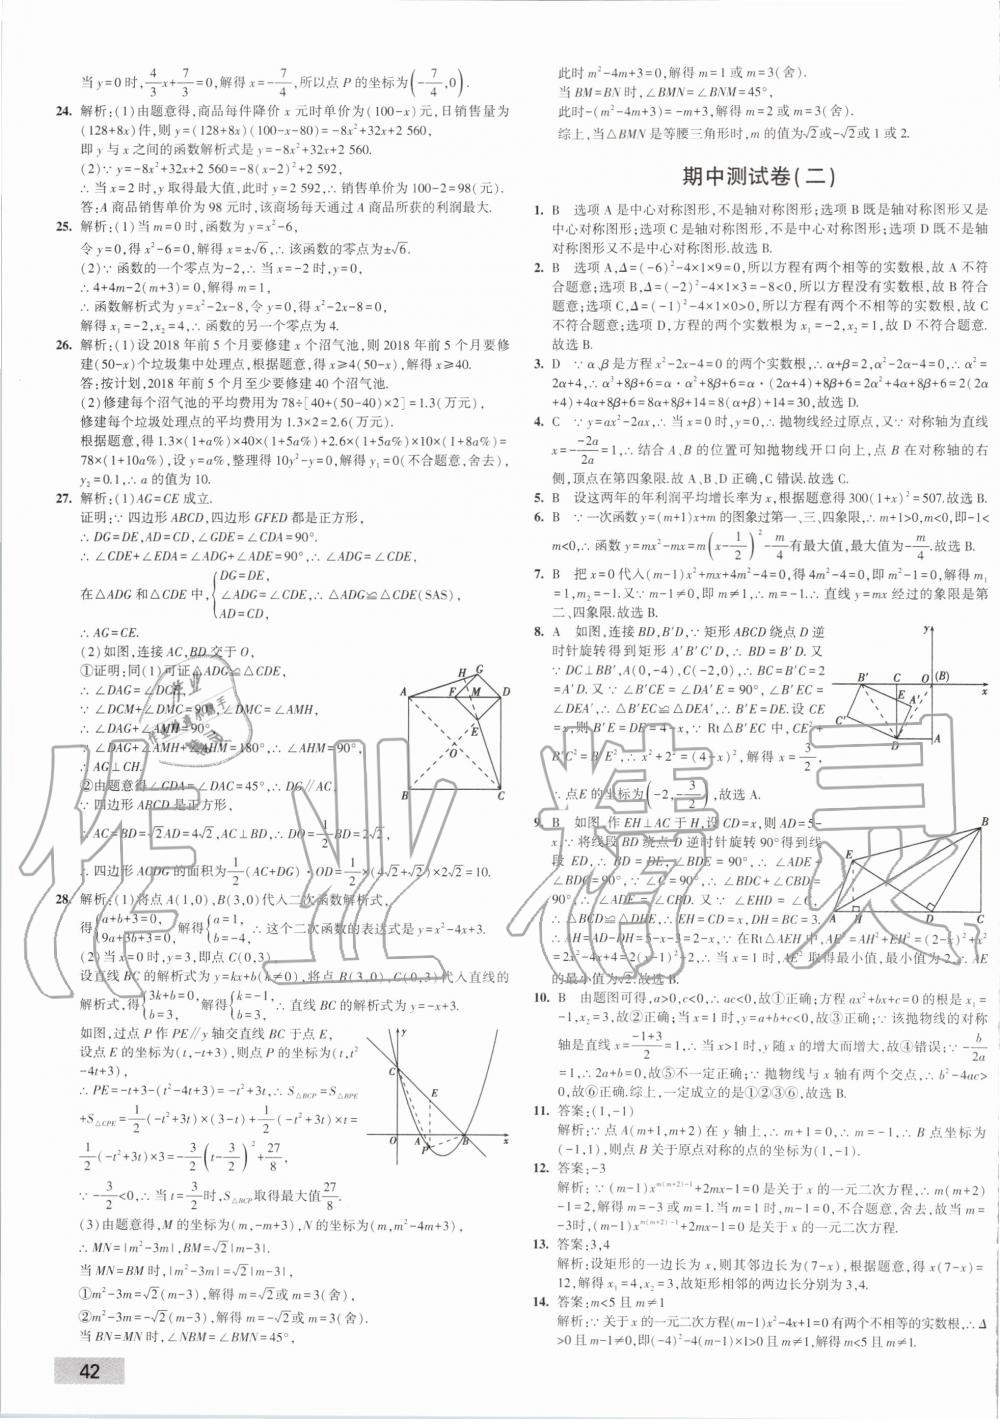 当 y=0 时,4/3x+7/3=0,解得 x=-7/4,所以点 P 的坐标为(-7/4,0).
24. 解析:(1)由题意得,商品每件降价 x 元时单价为(100-x)元,日销售量为
(128+8x)件,则 y=(128+8x)(100-x-80)=-8x²+32x+2 560,
即 y 与 x 之间的函数解析式是 y=-8x²+32x+2 560.
(2)∵y=-8x²+32x+2 560=-8(x-2)²+2 592,
∴当 x=2 时,y 取得最大值,此时 y=2 592,∴销售单价为 100-2=98(元).
答:A 商品销售单价为 98 元时,该商场每天通过 A 商品所获的利润最大.
25. 解析:(1)当 m=0 时,函数为 y=x²-6,
令 y=0,得 x²-6=0,解得 x=±√6,∴该函数的零点为±√6.
(2)∵函数的一个零点为-2,∴当 x=-2 时,y=0,
∴4+4m-2(m+3)=0,解得 m=1,
∴函数解析式为 y=x²-2x-8,令 y=0,得 x²-2x-8=0,
解得 x₁=-2,x₂=4,∴函数的另一个零点为 4.
26. 解析:(1)设 2018 年前 5 个月要修建 x 个沼气池,则 2018 年前 5 个月要修
建(50-x)个垃圾集中处理点,根据题意,得 x≥4(50-x),解得 x≥40.
答:按计划,2018 年前 5 个月至少要修建 40 个沼气池.
(2)修建每个沼气池的平均费用为 78÷[40+(50-40)×2]=1.3(万元),
修建每个垃圾处理点的平均费用为 1.3×2=2.6(万元).
根据题意,得 1.3×(1+a%)×40×(1+5a%)+2.6×(1+5a%)×10×(1+8a%)=
78×(1+10a%),设 y=a%,整理得 10y²-y=0,解得 y₁=0(不合题意,舍去),
y₂=0.1,∴a 的值为 10.
27. 解析:(1)AG=CE 成立.
证明:∵四边形 ABCD,四边形 GFED 都是正方形,
∴DG=DE,AD=CD,∠GDE=∠CDA=90°.
∴∠CDE+∠EDA=∠ADG+∠ADE=90°,∴∠ADG=∠CDE,
在△ADG 和△CDE 中,{DG=DE,∠ADG=∠CDE,AD=CD,∴△ADG≌△CDE(SAS),
∴AG=CE.
(2)如图,连接 AC,BD 交于 O,
①证明:同(1)可证△ADG≌△CDE,
∴∠DAG=∠DCE,
∵∠DCM+∠DMC=90°,∠DMC=∠AMH,
∴∠DAG+∠AMH=90°,
∵∠DAG+∠AMH+∠AHM=180°,∴∠AHM=90°,
∴AG⊥CH.
②由题意得∠GDA=∠DAC=45°,∴DG∥AC,
∵四边形 ABCD 是正方形,
∴AC=BD=√2AD=4√2,AC⊥BD,∴DO=1/2BD=2√2,
∴四边形 ACDG 的面积为1/2(AC+DG)·OD=1/2×(4√2+√2)×2√2=10.
28. 解析:(1)将点 A(1,0),B(3,0)代入二次函数解析式,
得{a+b+3=0,9a+3b+3=0,解得{a=1,b=-4,∴这个二次函数的表达式是 y=x²-4x+3.
(2)当 x=0 时,y=3,即点 C(0,3),
设直线 BC 的解析式为 y=kx+b(k≠0),将点 B(3,0),C(0,3)代入直线的
解析式,得{3k+b=0,b=3,解得{k=-1,b=3,∴直线 BC 的解析式为 y=-x+3.
如图,过点 P 作 PE∥y 轴交直线 BC 于点 E,
设点 E 的坐标为(t,-t+3),则点 P 的坐标为(t,t²
-4t+3),
∴PE=-t+3-(t²-4t+3)=-t²+3t,∴S△BCP=S△BPE
+S△CPE=1/2(-t²+3t)×(3-t)+1/2(-t²+3t)×t=
1/2(-t²+3t)×3=-3/2(t-3/2)²+27/8
∵-3/2<0,∴当 t=3/2时,S△BCP取得最大值27/8.
(3)由题意得,M 的坐标为(m,-m+3),N 的坐标为(m,m²-4m+3),
∴MN=|m²-3m|,BM=√2|m-3|.
当 MN=BM 时,|m²-3m|=√2|m-3|,
①m²-3m=√2(m-3),解得 m=√2或 m=3(舍),
②m²-3m=-√2(m-3),解得 m=-√2或 m=3(舍).
当 BN=MN 时,∠NBM=∠BMN=45°,
42
此时 m²-4m+3=0,解得 m=1 或 m=3(舍).
当 BM=BN 时,∠BMN=∠BNM=45°,
此时-(m²-4m+3)=-m+3,解得 m=2 或 m=3(舍).
综上,当△BMN 是等腰三角形时,m 的值为√2或-√2或 1 或 2.
期中测试卷(二)
1. B 选项 A 是中心对称图形,不是轴对称图形;选项 B 既是轴对称图形又是
中心对称图形;选项 C 是轴对称图形,不是中心对称图形;选项 D 既不是轴
对称图形又不是中心对称图形.故选 B.
2. B 选项 A,Δ=(-6)²-4×1×9=0,所以方程有两个相等的实数根,故 A 不符
合题意;选项 B,Δ=(-2)²-4×1×3=-8<0,所以方程没有实数根,故 B 符合
题意;选项 C,Δ=(-1)²-4×1×0>0,所以方程有两个不相等的实数根,故 C
不符合题意;选项 D,方程的两个实数根为 x₁=-2,x₂=1,故 D 不符合题意.
故选 B.
3. D ∵α、β 是方程 x²-2x-4=0 的两个实数根,∴α+β=2,α²-2α-4=0,∴α²=
2α+4,∴α³+8β+6=α·α²+8β+6=α·(2α+4)+8β+6=2α²+4α+8β+6=2(2α
+4)+4α+8β+6=8α+8β+14=8(α+β)+14=30,故选 D.
4. C ∵y=ax²-2ax,∴当 x=0 时,y=0,∴抛物线经过原点,又∵对称轴为直线
x=-(-2a)/2a=1,∴结合 A、B 的位置可知抛物线开口向上,点 B 在对称轴的右
侧,顶点在第四象限.故 A、B、D 正确,C 错误.故选 C.
5. B 设这两年的年利润平均增长率为 x,根据题意得 300(1+x)²=507.故选 B.
6. B ∵一次函数 y=(m+1)x+m 的图象过第一、三、四象限,∴m+1>0,m<0,即-1<
m<0,∴函数 y=mx²-mx=m(x-1/2)²-m/4有最大值,最大值为-m/4.故选 B.
7. B 把 x=0 代入(m-1)x²+mx+4m²-4=0,得 4m²-4=0,即 m²-1=0,解得 m₁
=1,m₂=-1.又∵m-1≠0,即 m≠1,∴m=-1,∴直线 y=mx 经过的象限是第
二、四象限.故选 B.
8. A 如图,连接 BD,B′D,∵矩形 ABCD 绕点 D 逆
时针旋转得到矩形 A′B′C′D,∴BD=B′D.又
∵DC⊥BB′,A(0,-4),C(-2,0),∴BC=B′C=2
=A′D.又∵∠B′CE=∠DA′E=90°,∠B′EC=
∠DEA′,∴△B′EC≌△DEA′,∴B′E=DE.设 CE
=x,则 B′E=DE=4-x,∵Rt△B′EC 中,CE²+
B′C²=B′E²,∴x²+2²=(4-x)²,解得 x=3/2,
∴点E的坐标为(-2,-3/2),故选 A.
9. B 如图,作 EH⊥AC 于 H,设 CD=x,则 AD=5-
x,∵将线段 BD 绕点 D 逆时针旋转 90°得到线
段 ED,∴BD=DE,∠BDE=90°,∴∠ADE+
∠BDC=90°,∵∠C=90°,∴∠BDC+∠CBD=
90°,∴∠ADE=∠CBD.又∵∠EHD=∠C,
∴△BCD≌△DHE,∴EH=CD=x,DH=BC=3.
∴AH=AD-DH=5-x-3=2-x,∵在Rt△AEH 中,AE²=AH²+EH²=(2-x)²+x²
=2x²-4x+4=2(x-1)²+2,∴当 x=1 时,AE²取得最小值,最小值为 2,∴AE
的最小值为√2.故选 B.
10. B 由题图可得,a>0,c<0,∴ac<0,故①正确;方程 ax²+bx+c=0 的根是 x₁=
-1,x₂=3,故②正确;当 x=1 时,y=a+b+c<0,故③正确;∵该抛物线的对称
轴是直线 x=(-1+3)/2=1,∴当 x>1 时,y 随 x 的增大而增大,故④错误;∵-b/2a
=1,∴2a+b=0,故⑤不一定正确;∵抛物线与 x 轴有两个交点,∴b²-4ac>
0,故⑥正确.综上,一定成立的是①②③⑥,故选 B.
11. 答案:(1,-1)
解析:∵点 A(m+1,m+2)在 y 轴上,∴m+1=0,∴m=-1,∴点 B 坐标为
(-1,1),则点 B 关于原点对称的点的坐标为(1,-1).
12. 答案:-3
解析:∵(m-1)x^{m(m+2)-1}+2mx-1=0 是关于 x 的一元二次方程,∴m(m+2)
-1=2,解得 m=-3 或 m=1.当 m=1 时,m-1=0,不合题意,舍去,当 m=
-3时,(m-1)x^{m(m+2)-1}+2mx-1=0 是关于 x 的一元二次方程.
13. 答案:3,4
解析:设矩形的一边长为 x,则其邻边长为(7-x),根据题意,得 x(7-x)=
12,解得 x₁=4,x₂=3,故矩形相邻的两边长分别为 3,4.
14. 答案:m<5 且 m≠1
解析:∵关于 x 的一元二次方程(m-1)x²-4x+1=0 有两个不相等的实数根,∴Δ
>0 且 m-1≠0,即(-4)²-4(m-1)×1>0 且 m≠1,解得 m<5 且 m≠1.
作业精灵